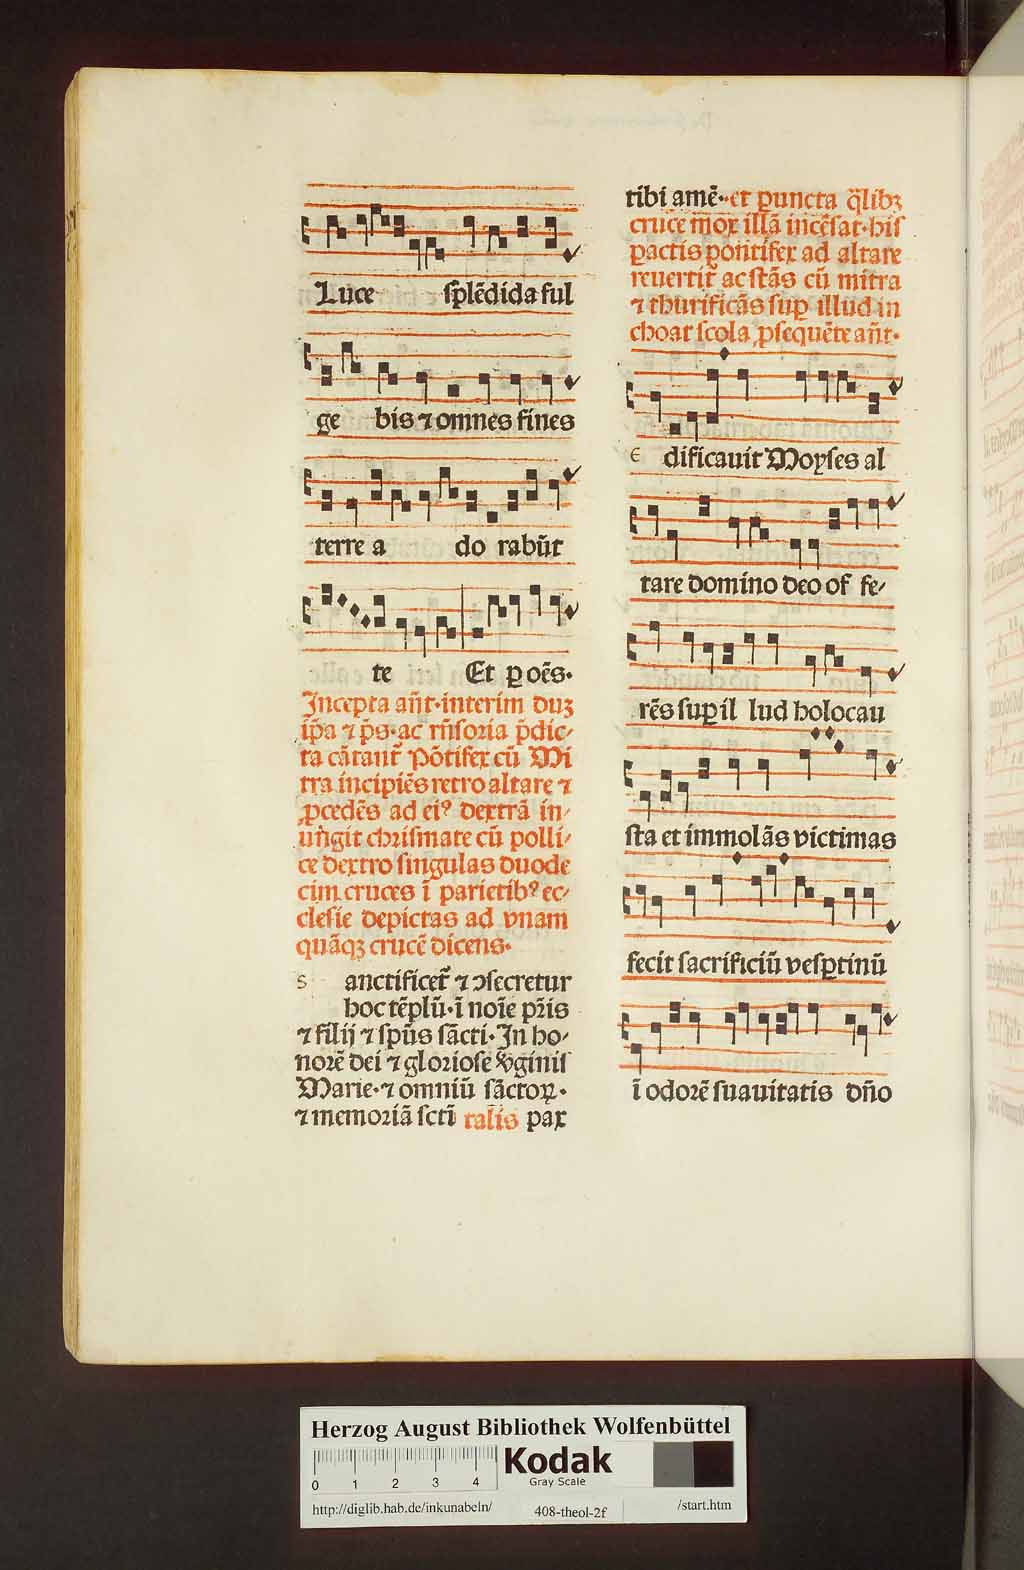 Luce splēdida ful
ge bis ⁊ omnes fines
terre a do rabūt
te Et ꝑ oēs.
Incepta añt. interim duꝫ
ip̄a ⁊ p̄s. ac rn̄soria p̄dic-
ta cātant᷑ Pōtifex cū Mi
tra incipiēs retro altare ⁊
ꝓcedēs ad ei⁹ dextrā in-
ungit chrismate cū polli-
ce dextro singulas duode
cim cruces ī parietib⁹ ec-
clesie depictas ad vnam
quāqꝫ crucē dicens.
s anctificet᷑ ⁊ ↄsecretur
hoc tēplū. ī noīe pr̄is
⁊ filij ⁊ spūs sācti. In ho-
norē dei ⁊ gloriose v̾ginis
Marie. ⁊ omniū sāctoꝝ.
⁊ memoriā sctī talis pax
tibi amē. et puncta q̄libꝫ
cruce mox illā incēsat. his
ꝑactis pontifex ad altare
reuertit᷑ ac stās cū mitra
⁊ thurificās suꝑ illud in
choat scola ꝓsequēte añt.
e dificauit Moyses al
tare domino deo of fe-
rēs suꝑ il lud holocau
sta et immolās victimas
fecit sacrificiū vesꝑtinū
ī odorē suauitatis dn̄o
Herzog August Bibliothek Wolfenbüttel
Kodak
Gray Scale
0 1 2 3 4
http://diglib.hab.de/inkunabeln/ 408-theol-2f /start.htm